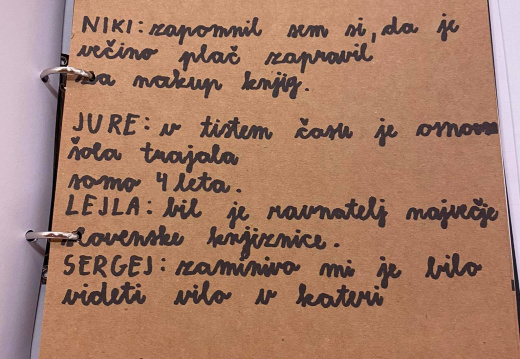 NIKI: zapomnil sem si, da je
večino plač zapravil
za nakup knjig.
JURE: v tistem času je osnovna
šola trajala
samo 4 leta.
LEJLA: bil je ravnatelj največje
slovenske knjiznice.
SERGEJ: zaminivo mi je bilo
videti vilo v kateri